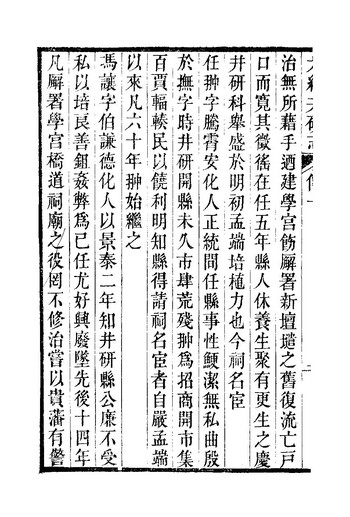 治無所藉手迺建學宮飭廨署新壇壝之舊復流亡戸
口而寬其徵徭在任五年縣人休養生聚有更生之慶
井研科舉盛於明初孟端培植力也今祠名宦
任翀字騰霄安化人正統間任縣事性鯁潔無私曲殷
於撫字時井研開縣未久市肆荒殘翀爲招商開市集
百賈輻輳民以饒利明知縣得請祠名宦者自嚴孟端
以來凡六十年翀始繼之
馮讓字伯謙德化人以景泰二年知井研縣公廉不受
私以培良善鉏姦弊爲已任尤好興廢墜先後十四年
凡廨署學宮橋道祠廟之役罔不修治嘗以貴藩有警